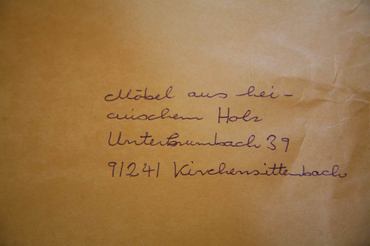 Möbel aus hei-
mischem Holz
Unterkrumbach 39
91241 Kirchensittenbach